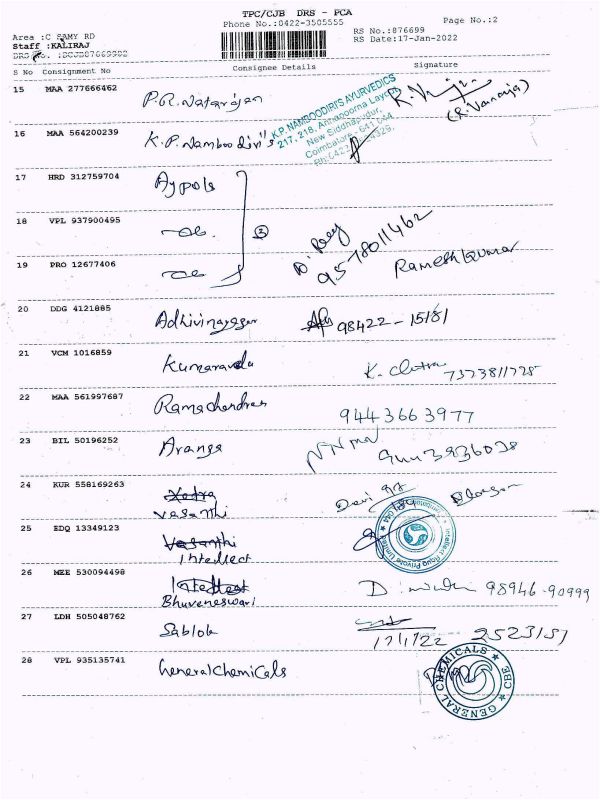 TPC/CJB DRS - PCA
Phone No.:0422-3505555
Page No.:2
Area :C SAMY RD
Staff :KALIRAJ
RS No.:876699
RS Date:17-Jan-2022
S No Consignment No Consignee Details Signature
15 MAA 277666462 P.R. Natarajan
16 MAA 564200239 K.P. Namboodiri's
K.P. NAMBOODIRI'S AYURVEDICS
217, 218, Annapoorna Layout
New Siddhapudur,
Coimbatore - 641 044
17 HRD 312759704 Aypols
18 VPL 937900495 9578011462
19 PRO 12677406 Rameshkumar
20 DDG 4121885 Adhivinayagar 98422-15181
21 VCM 1016859 K. Chitra 7373811728
22 MAA 561997687 Ramachandran 9443663977
23 BIL 50196252 Aranga
24 KUR 558169263 Vasanthi
25 EDQ 13349123 Vasanthi
Intellect
26 MZE 530094498 Intellect
Bhuveneswari 98946-90999
27 LDH 505048762 Sablok 17/1/22 2523151
28 VPL 935135741 General Chemicals
GENERAL CHEMICALS CBE